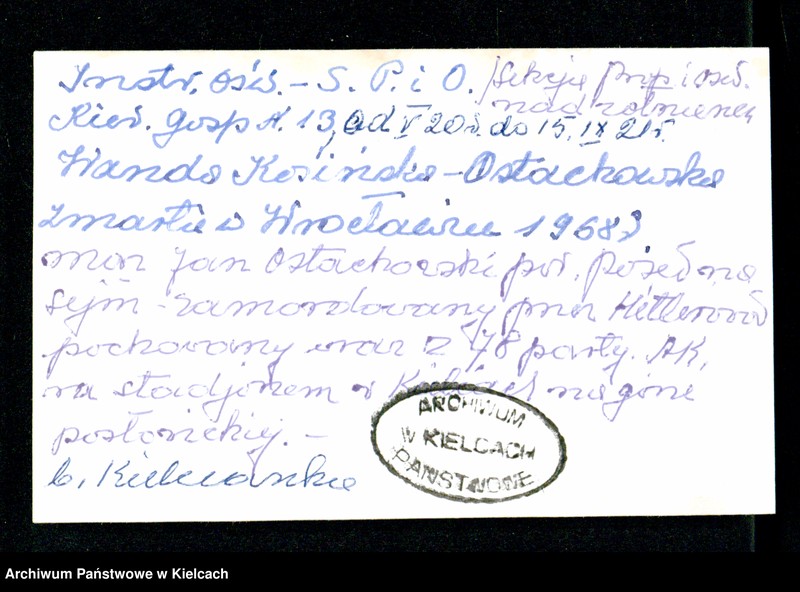 Instr. ośw. – S. P. i O. /Sekcję prop i ośw.
nad żołnierzem
Kier. gosp A. 13, od V 20 r. do 15. IX 21 r.
Wanda Kosińska-Ostachowska
zmarła w Wrocławiu 1968 r
mąż Jan Ostachowski por. poseł na
sejm – zamordowany przez Hitlerowców
pochowany wraz z 78 party. AK,
na stadjonem w Kielcach na górze
b. Kielczanka
ARCHIWUM
W KIELCACH
PAŃSTWOWE
Archiwum Państwowe w Kielcach